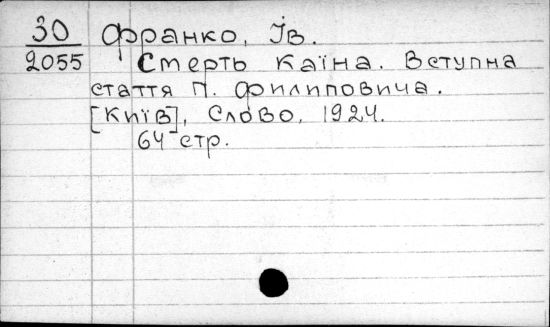 30 Франко, Ів.
2055 Смерть Каїна. Вступна
стаття П. Филиповича.
[Київ], Слово, 1924.
64 стр.